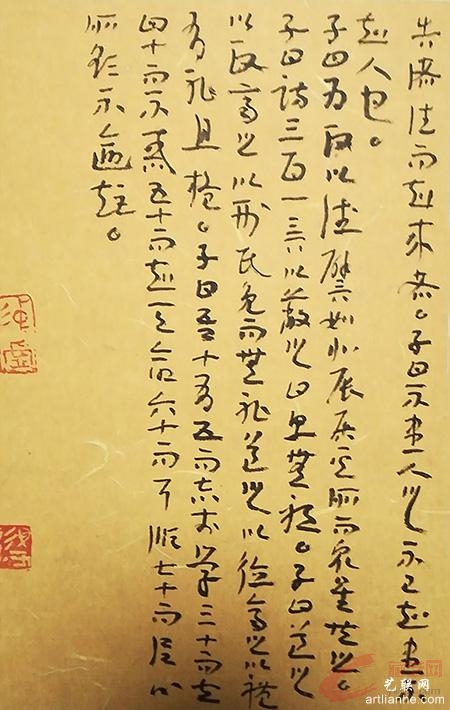 告諸往而知來者。子曰不患人之不己知患不
知人也。
子曰為政以德譬如北辰居其所而眾星共之。
子曰詩三百一言以蔽之曰思無邪。子曰道之
以政齊之以刑民免而無恥道之以德齊之以禮
有恥且格。子曰吾十有五而志于學三十而立
四十而不惑五十而知天命六十而耳順七十而從心
所欲不逾矩。
艺联网
artlianhe.com